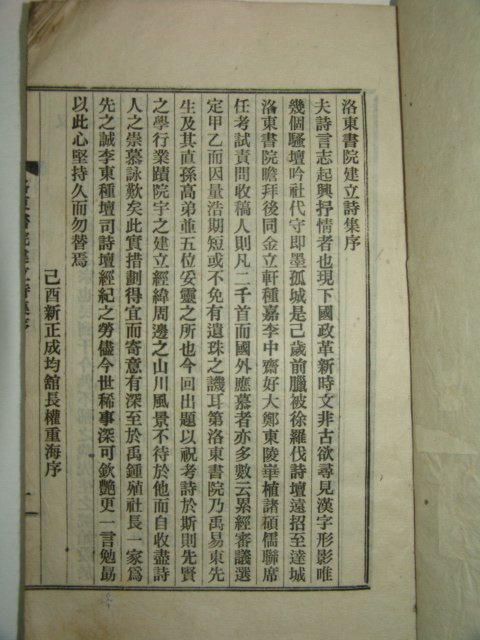 洛東書院建立詩集序
夫詩言志起興抒情者也現下國政革新時文非古欲尋見漢字形影唯
幾個騷壇吟社代守即墨孤城是己歲前臘被徐羅伐詩壇遠招至達城
洛東書院瞻拜後同金立軒種嘉李中齋好大鄭東陵崋植諸碩儒聯席
任考試責問收稿人則凡二千首而國外應慕者亦多數云累經審議選
定甲乙而因量浩期短或不免有遺珠之譏耳第洛東書院乃禹易東先
生及其直孫高弟並五位妥靈之所也今回出題以祝考詩於斯則先賢
之學行業蹟院宇之建立經緯周邊之山川風景不待於他而自收盡詩
人之崇慕詠歎矣此實措劃得宜而寄意有深至於禹鍾殖社長一家爲
先之誠李東種壇司詩壇經紀之勞儘今世稀事深可欽艶更一言勉勗
以此心堅持久而勿替焉
己酉新正成均館長權重海序